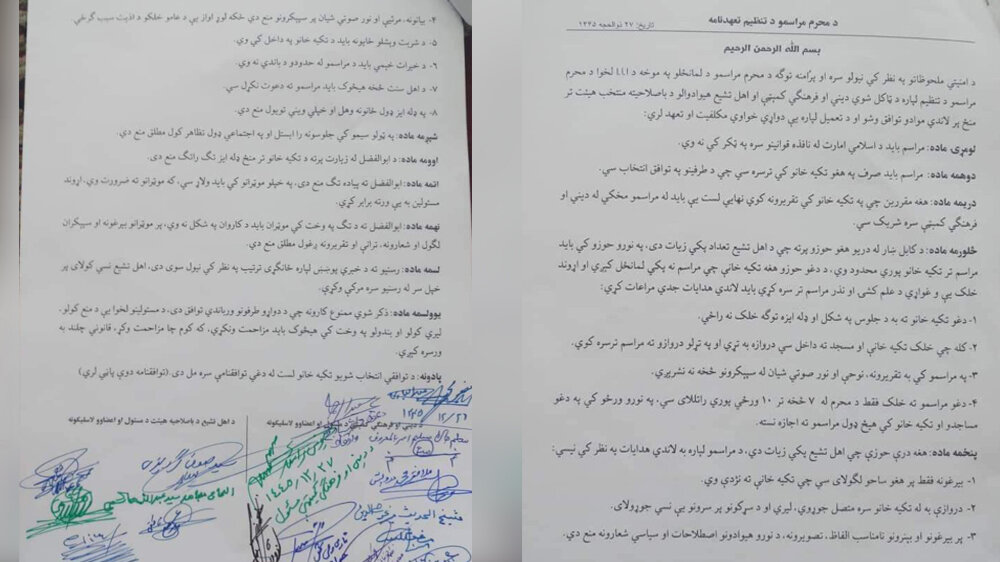 د محرم مراسمو د تنظیم تعهدنامه
تاریخ: ۲۷ ذوالحجه ۱۴۴۵
بسم الله الرحمن الرحیم
د امنیتي ملحوظاتو په نظر کي نیولو سره او پرامنه توګه د محرم مراسمو د لمانځلو په موخه د ا.ا.ا لخوا د محرم
مراسمو د تنظیم لپاره د ټاکل شوي دیني او فرهنګي کمېټې او اهل تشیع هیوادوالو د باصلاحیته منتخب هیئت تر
منځ پر لاندي موادو توافق وشو او د تعمیل لپاره یې دواړي خواوي مکلفیت او تعهد لري:
لومړۍ ماده: مراسم باید د اسلامي امارت له نافذه قوانینو سره په ټکر کي نه وي.
دوهمه ماده: مراسم باید صرف په هغو تکیه خانو کي ترسره سي چي د طرفینو په توافق انتخاب سي.
دریمه ماده: هغه مقررین چي په تکیه خانو کي تقریرونه کوي نهایي لست یې باید له مراسمو مخکي له دیني او
فرهنګي کمېټې سره شریک سي.
څلورمه ماده: د کابل ښار له دریو هغو حوزو پرته چي د اهل تشیع تعداد پکي زیات دی، په نورو حوزو کي باید
مراسم تر تکیه خانو پوري محدود وي، د دغو حوزو هغه تکیه خانې چي مراسم نه پکي لمانځل کیږي او اړوند
خلک یې و غواړي د علم کشی او نذر مراسم تر سره کړي باید لاندي هدایات جدي مراعات کړي:
۱- دغو تکیه خانو ته به د جلوس په شکل او ډله ایزه توګه خلک نه راځي.
۲- کله چي خلک تکیه خانې او مسجد ته داخل سي دروازه به تړي او په تړلو دروازو ته مراسم ترسره کوي.
۳- په مراسمو کي به تقریرونه، نوحې او نور صوتي شیان له سپیکرونو څخه نه نشریږي.
۴- دغو مراسمو ته خلک فقط د محرم له ۷ څخه تر ۱۰ ورځي پوري راتللای سي، په نورو ورځو کي په دغو
مساجدو او تکیه خانو کي هیڅ ډول مراسمو ته اجازه نسته.
پنځمه ماده: هغه درې حوزې چي اهل تشیع پکي زیات دي، د مراسمو لپاره به لاندي هدایات په نظر کي نیسي:
۱- بیرغونه فقط پر هغو ساحو لګولای سي چي تکیه خانې ته نژدې وي.
۲- دروازې به له تکیه خانو سره متصل جوړوي، لیري او د سړکونو پر سرونو یې نسي جوړولای.
۳- پر بیرغونو او بینرونو نامناسب الفاظ، تصویرونه، د نورو هیوادونو اصطلاحات او سیاسي شعارونه منع دي.
۴- بیاتونه، مرثیې او نور صوتي شیان پر سپیکرونو منع دي ځکه لوړ اواز یې د عامو خلکو د اذیت سبب ګرځي.
۵- د شربت ویشلو ځایونه باید د تکیه خانو په داخل کي وي.
۶- د خیرات خیمې باید د مراسمو له حدودو د باندي نه وي.
۷- د اهل سنت څخه هیڅوک باید مراسمو ته دعوت نکړل سي.
۸- په ډله ایز ډول ځانونه وهل او خپلي ویني تویول منع دي.
شپږمه ماده: په ټولو سیمو کي جلوسونه را ایستل او په اجتماعي ډول تظاهر کول مطلق منع دي.
اوومه ماده: د ابوالفضل له زیارت پرته د تکیه خانو تر منځ ډله ایز تګ راتګ منع دي.
اتمه ماده: ابوالفضل ته پیاده تګ منع دی، په خپلو موټرانو کي باید ولاړ سي، که موټرانو ته ضرورت وي، اړوند
مسئولین به یې ورته برابر کړي.
نهمه ماده: ابوالفضل ته د تګ په وخت کي موټران باید د کاروان په شکل نه وي، پر موټرانو بیرغونه او سپیکران
لګول او شعارونه، ترانې او تقریرونه ږغول مطلق منع دي.
لسمه ماده: رسنیو ته د خبري پوښښ لپاره ځانګړی ترتیب په نظر کي نیول سوی دی، اهل تشیع نسي کولای پر
خپل سر له رسنیو سره مرکې وکړي.
یوولسمه ماده: ذکر شوي ممنوع کارونه چي د دواړو طرفونو ورباندي توافق دی، د مسئولینو لخوا یې د منع کولو،
لیري کولو او بندولو په وخت کي هیڅوک باید مزاحمت ونکړي، که کوم چا مزاحمت وکړ، قانوني چلند به
ورسره کیږي.
یادونه: د توافقي انتخاب شویو تکیه خانو لست له دغې توافقنامې سره مل دی. (توافقنامه دوې پاڼې لري)
د دیني او فرهنګي کمېټې د مسئول او اعضاوو لاسلیکونه
د اهل تشیع د باصلاحیته هیئت د مسئول او اعضاوو لاسلیکونه